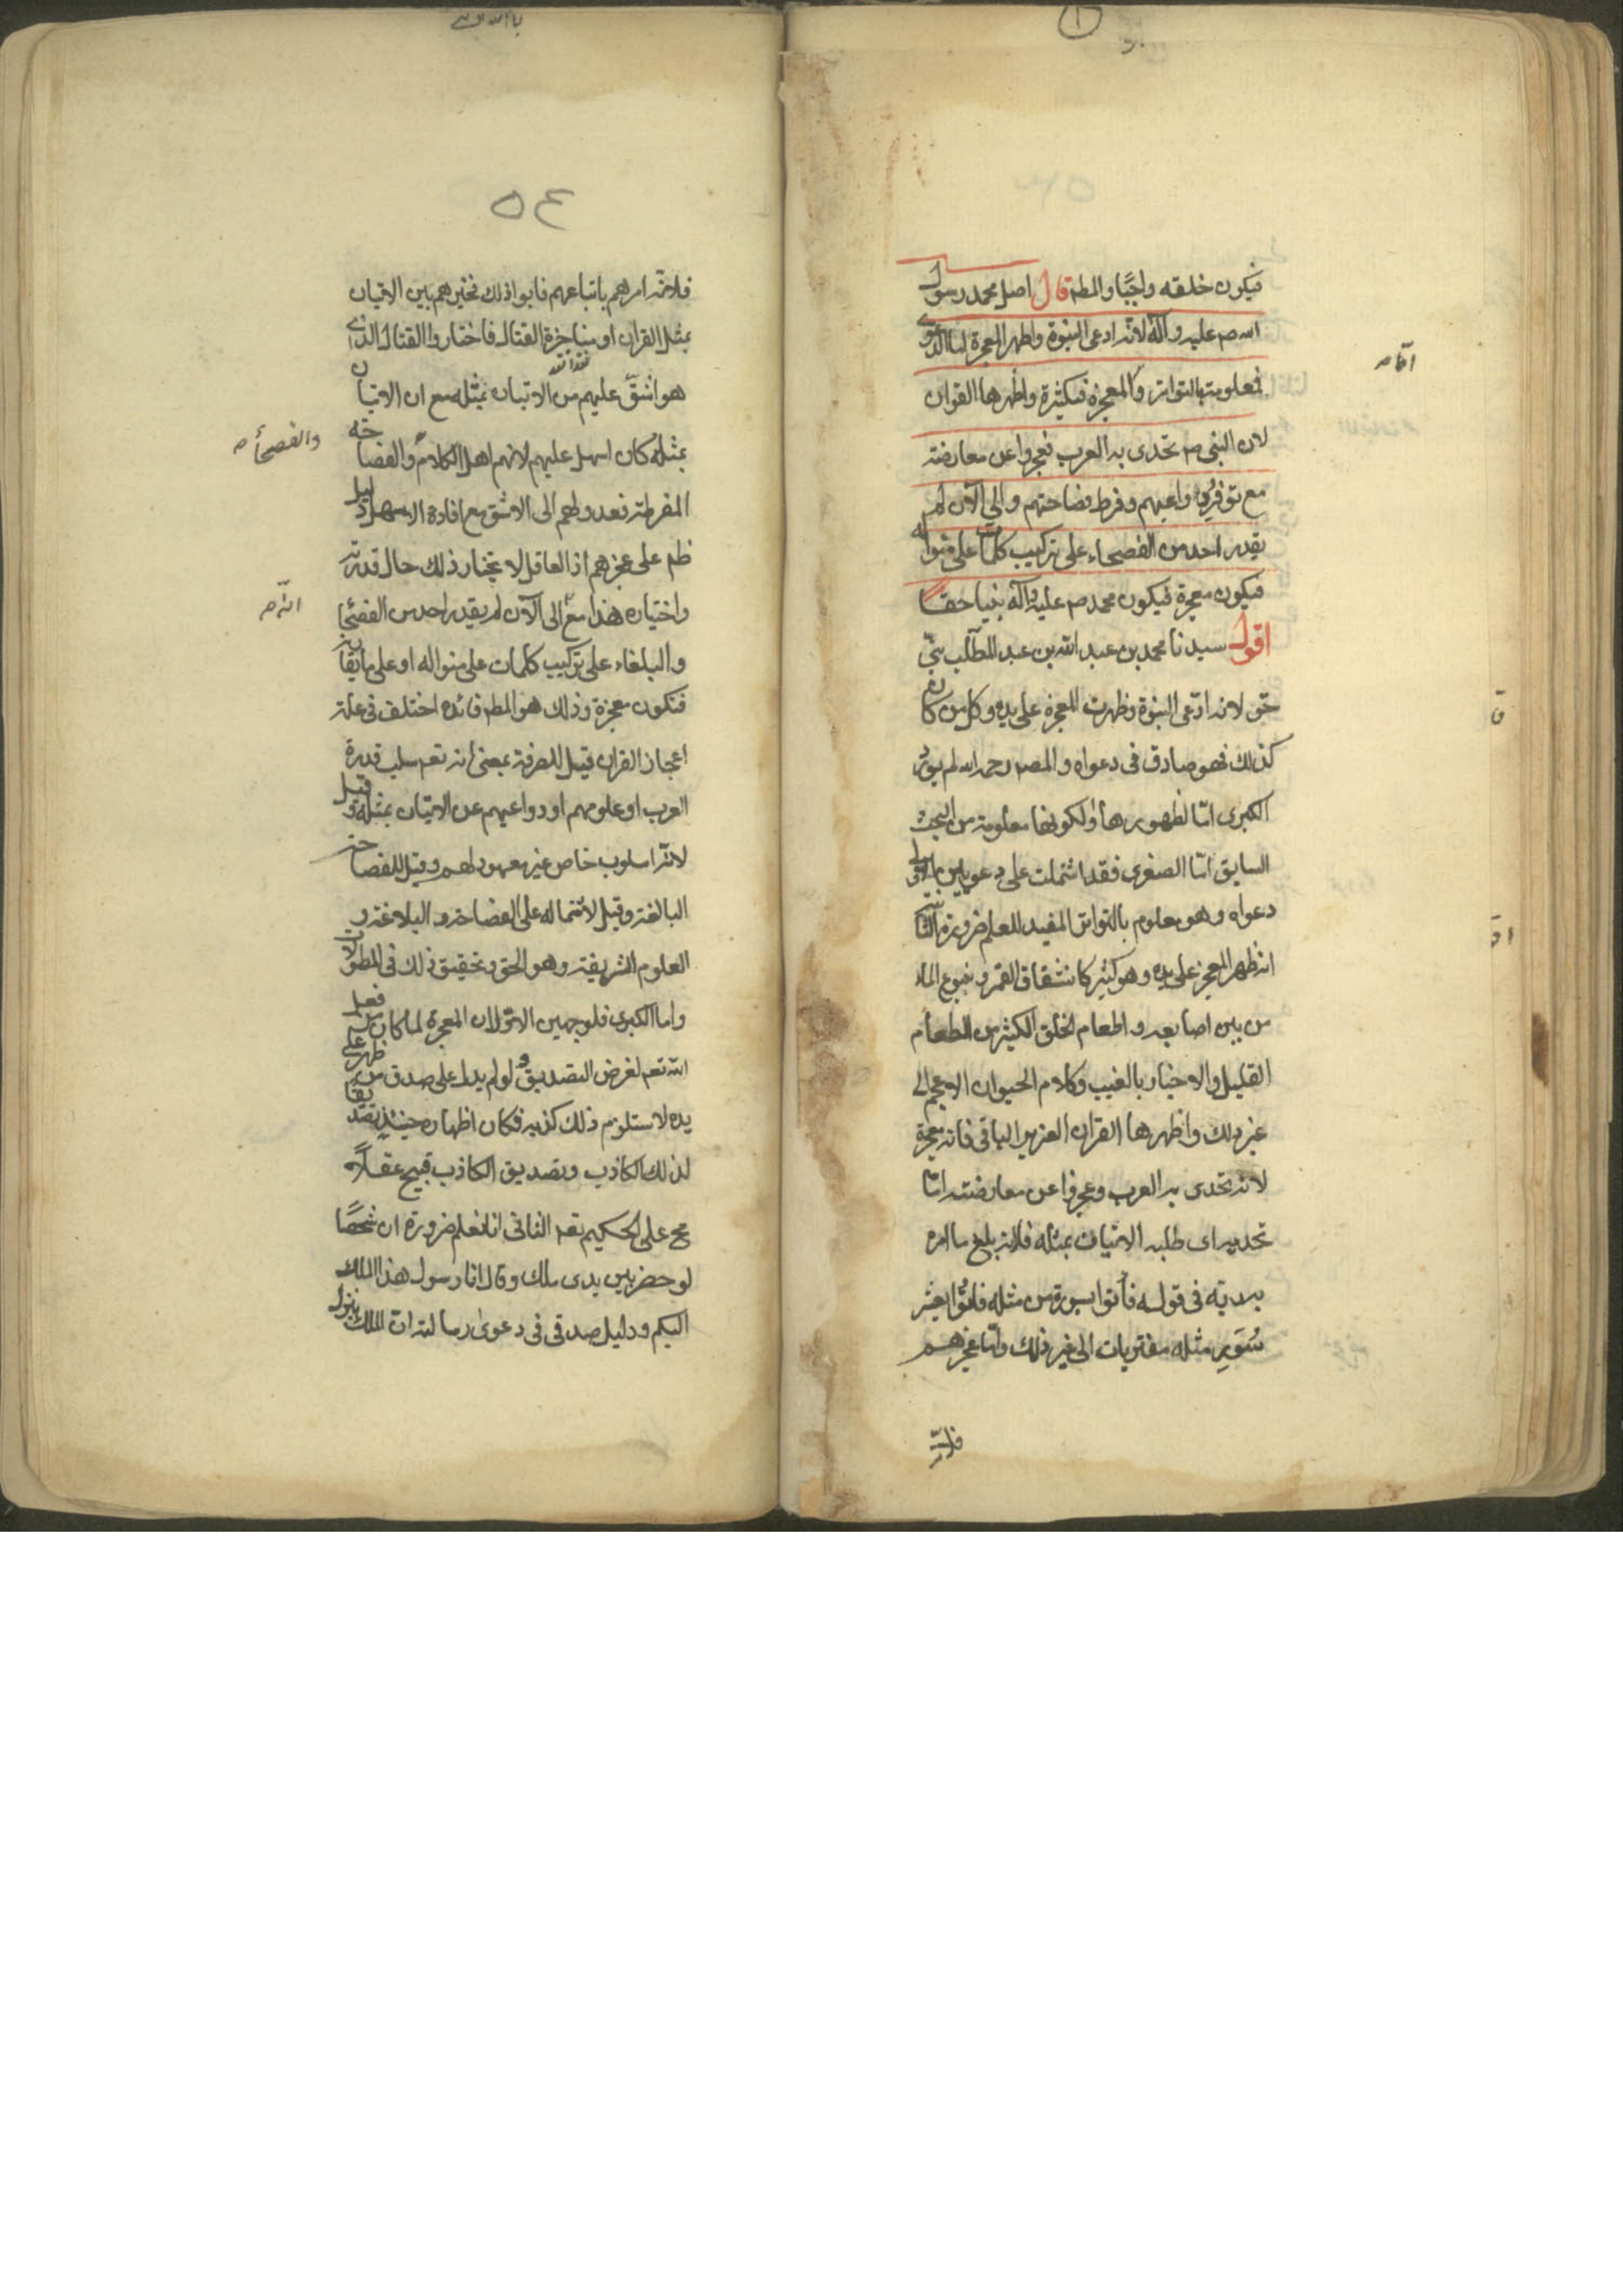 فيكون خلقه واجبًا والمط قال اصل محمد رسول
الله ص عليه وآله لانه ادعى النبوة واظهر المعجزة اما الدعوى
فمعلومة بالتواتر واما المعجزة فكثيرة واظهرها القران
لان النبى ص تحدى به العرب فعجزوا عن معارضته
مع توفر دواعيهم وفرط فصاحتهم والى الآن لم
يقدر احد من الفصحاء على تركيب كلمات على منواله
فيكون معجزة فيكون محمد ص عليه وآله نبيا حقا
اقول سيدنا محمد بن عبد الله بن عبد المطلب نبىّ
حق لانه ادّعى النبوة وظهرت المعجزة على يده وكل من كان
كذلك فهو صادق فى دعواه والمصـ رحمه الله لم يورد
الكبرى امّا لظهورها او لكونها معلومة من البحث
السابق امّا الصغرى فقد اشتملت على دعويين الاولى
دعواه وهو معلوم بالتواتر المفيد للعلم ضرورة الثانية
انه ظهر المعجز على يده وهو كثير كانشقاق القمر ونبوع الماء
من بين اصابعه واطعام الخلق الكثير من الطعام
القليل والاخبار بالغيب وكلام الحيوان الاعجم الى
غير ذلك واظهرها القران العزيز الباقى فانه معجزة
لانه تحدى به العرب وعجزوا عن معارضته امّا
تحديه اى طلبه الاتيان بمثله فلانه بلغ ما امره
به ربّه فى قوله فأتوا بسورة من مثله فاتُوا بعشر
سُوَرٍ مثله مفتريات الى غير ذلك وامّا عجزهم
فلانّه
امّا ص
٥٤
فلانّه امرهم باتباعهم فابوا ذلك فخيرهم بين الاتيان
بمثل القران او مناجزة القتال فاختاروا القتال الذى
هو اشقّ عليهم من الاتيان بمثله مع ان الاتيان
بمثله كان اسهل عليهم لانهم اهل الكلام والفصاحة
المفرطة فعدولهم الى الاشق مع افادة الاسهل دليل
ظم على عجزهم اذ العاقل لا يختار ذلك حال قدرته
واختياره هذا مع الى الآن لم يقدر احد من الفصحاء
والبلغاء على تركيب كلمات على منواله او على ما يقاربه
فتكون معجزة وذلك هو المط فائدة اختلف فى علة
اعجاز القران فقيل للصرفة بمعنى انه تعم سلب قدرة
العرب او علومهم او دواعيهم عن الاتيان بمثله وقيل
لانّه اسلوب خاص غير معهود لهم وقيل للفصاحة
البالغة وقيل لاشتماله على الفصاحة والبلاغة و
العلوم الشريفة وهو الحق وتحقيق ذلك فى المطولات
واما الكبرى فلوجهين الاوّل ان المعجزة لما كان من فعل
الله تعم لغرض التصديق ولو لم يدل على صدق من ظهر على
يده لاستلزم ذلك كذبه فكان اظهاره حينئذٍ تصديقا
لذلك الكاذب وتصديق الكاذب قبيح عقلًا
مح على الحكيم تعم الثانى انا نعلم ضرورة ان شخصًا
لو حضر بين يدى ملك وقال انا رسول هذا الملك
اليكم ودليل صدقى فى دعوى رسالته ان الملك ينزل
والفصحأ ص
انّه ص